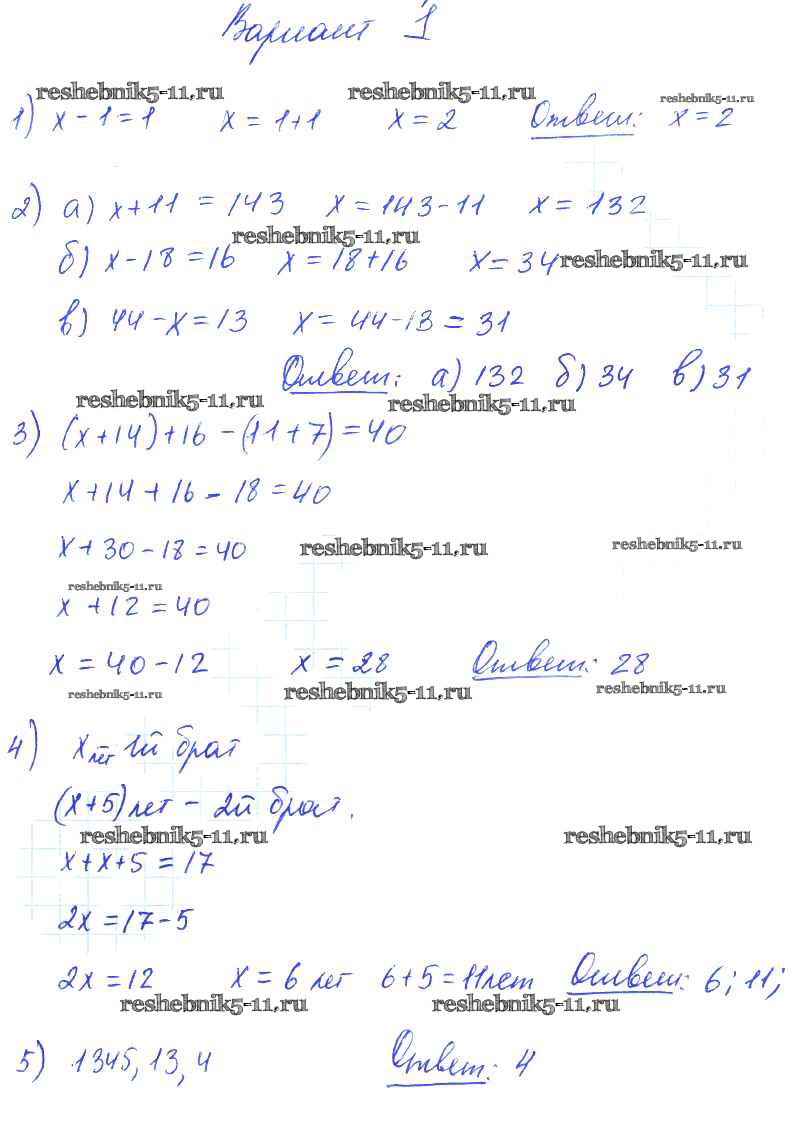 Вариант 1
reshebnik5-11.ru reshebnik5-11.ru reshebnik5-11.ru
1) x - 1 = 1 x = 1+1 x = 2 Ответ: x = 2
2) а) x+11 = 143 x = 143-11 x = 132
reshebnik5-11.ru
б) x-18 = 16 x = 18+16 x = 34 reshebnik5-11.ru
в) 44-x = 13 x = 44-13 = 31
Ответ: а) 132 б) 34 в) 31
reshebnik5-11.ru reshebnik5-11.ru
3) (x+14)+16-(11+7)=40
x+14+16-18=40
x+30-18=40 reshebnik5-11.ru reshebnik5-11.ru
reshebnik5-11.ru
x+12=40
x = 40-12 x = 28 Ответ: 28
reshebnik5-11.ru reshebnik5-11.ru reshebnik5-11.ru
4) x лет 1й брат
(x+5) лет - 2й брат.
reshebnik5-11.ru reshebnik5-11.ru
x+x+5 = 17
2x = 17-5
2x = 12 x = 6 лет 6+5 = 11 лет Ответ: 6; 11;
reshebnik5-11.ru reshebnik5-11.ru
5) 1345, 13, 4 Ответ: 4